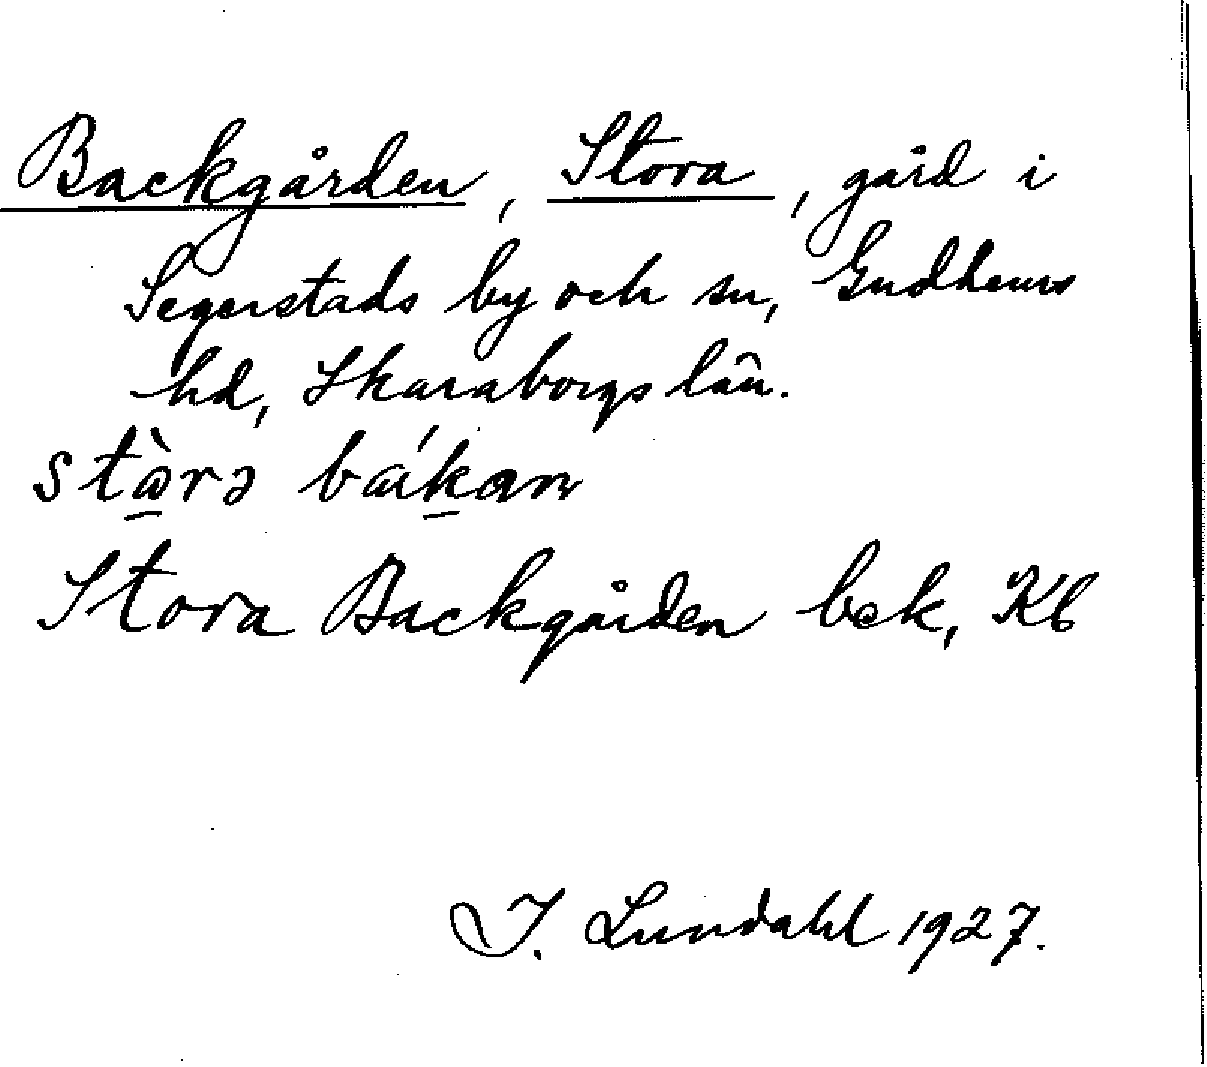 Backgården, Stora, gård i
Segerstads by och sn, Gudhems
hd, Skaraborgs län.
stꞷ̀rə bákan
Stora Backgården bek, Kb
I. Lundahl 1927.